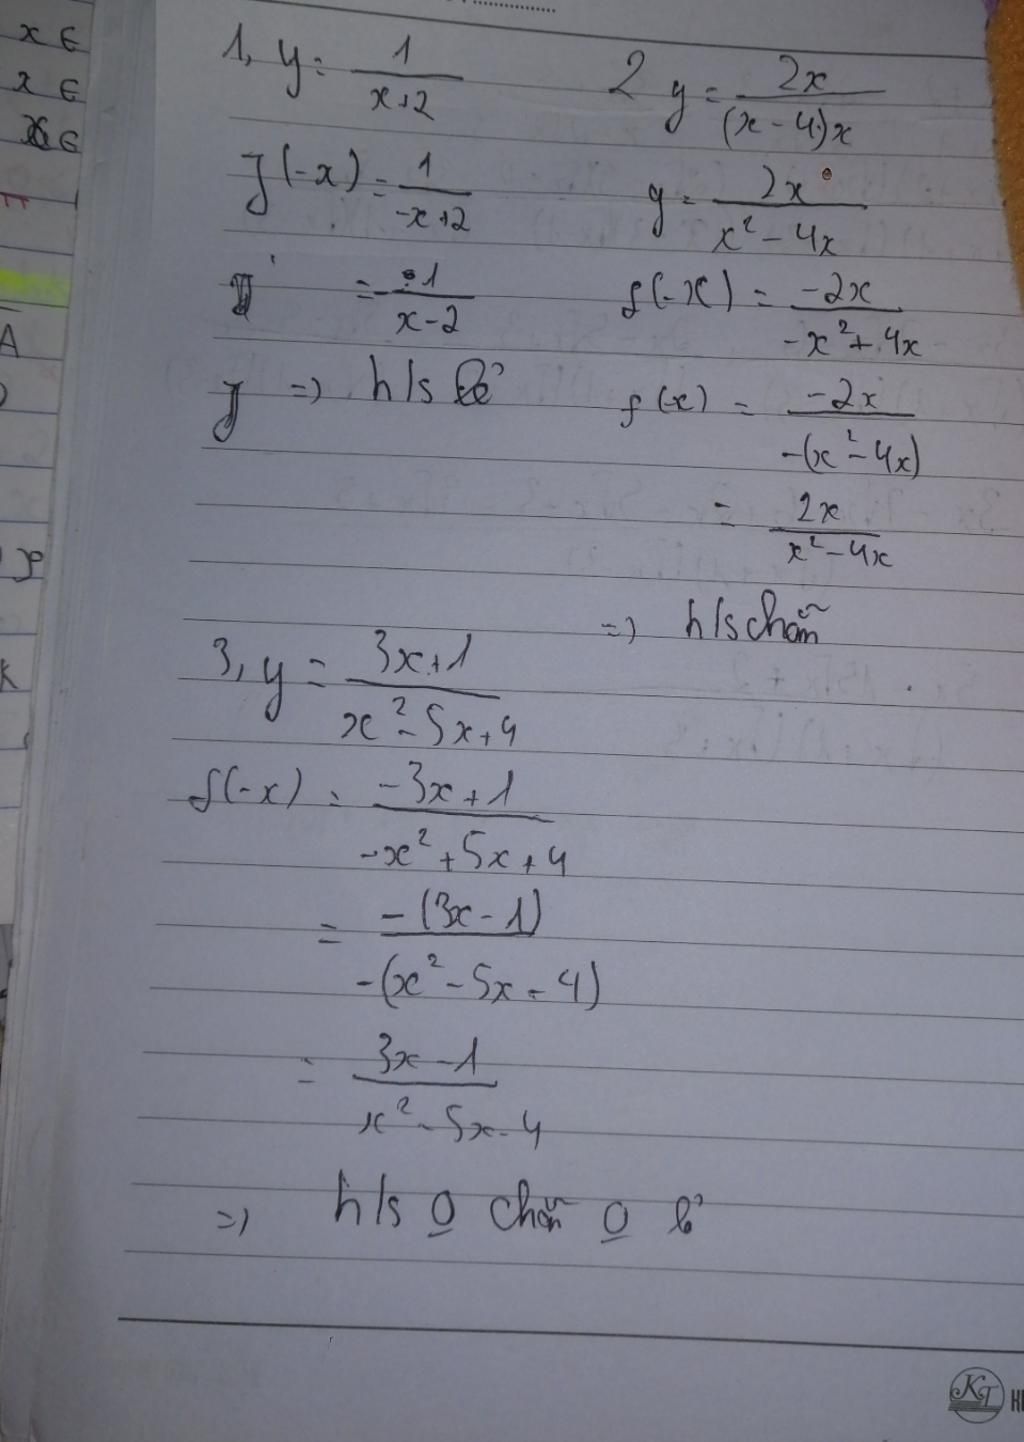 x ∈
x ∈
x ∈
A
K
1, y = 1/(x+2)
f(-x) = 1/(-x+2)
= -1/(x-2)
=> h/s lẻ
2 y = 2x/((x-4)x)
y = 2x/(x²-4x)
f(-x) = -2x/(-x²+4x)
f(-x) = -2x/(-(x²-4x))
= 2x/(x²-4x)
=> h/s chẵn
3, y = (3x+1)/(x²-5x+4)
f(-x) = (-3x+1)/(-x²+5x+4)
= -(3x-1)/(-(x²-5x-4))
= (3x-1)/(x²-5x-4)
=> h/s o chẵn o lẻ
KT